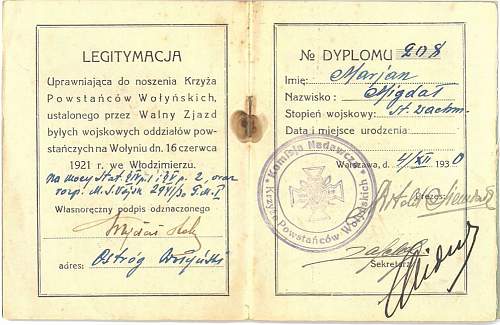 LEGITYMACJA
Uprawniająca do noszenia Krzyża
Powstańców Wołyńskich,
ustalonego przez Walny Zjazd
byłych wojskowych oddziałów pow-
stańczych na Wołyniu dn. 16 czerwca
1921 r. we Włodzimierzu.
na mocy Stat. 2, oraz
rozp. M.S.Wojsk
Własnoręczny podpis odznaczonego
adres: Ostróg Wołyński
№ DYPLOMU 208
Imię: Marjan
Nazwisko: Migdał
Stopień wojskowy: st. zachm.
Data i miejsce urodzenia:
Komisja Nadawcza
Krzyża Powstańców Wołyńskich
Warszawa, d. 4/XII 1930
Prezes:
Sekretarz